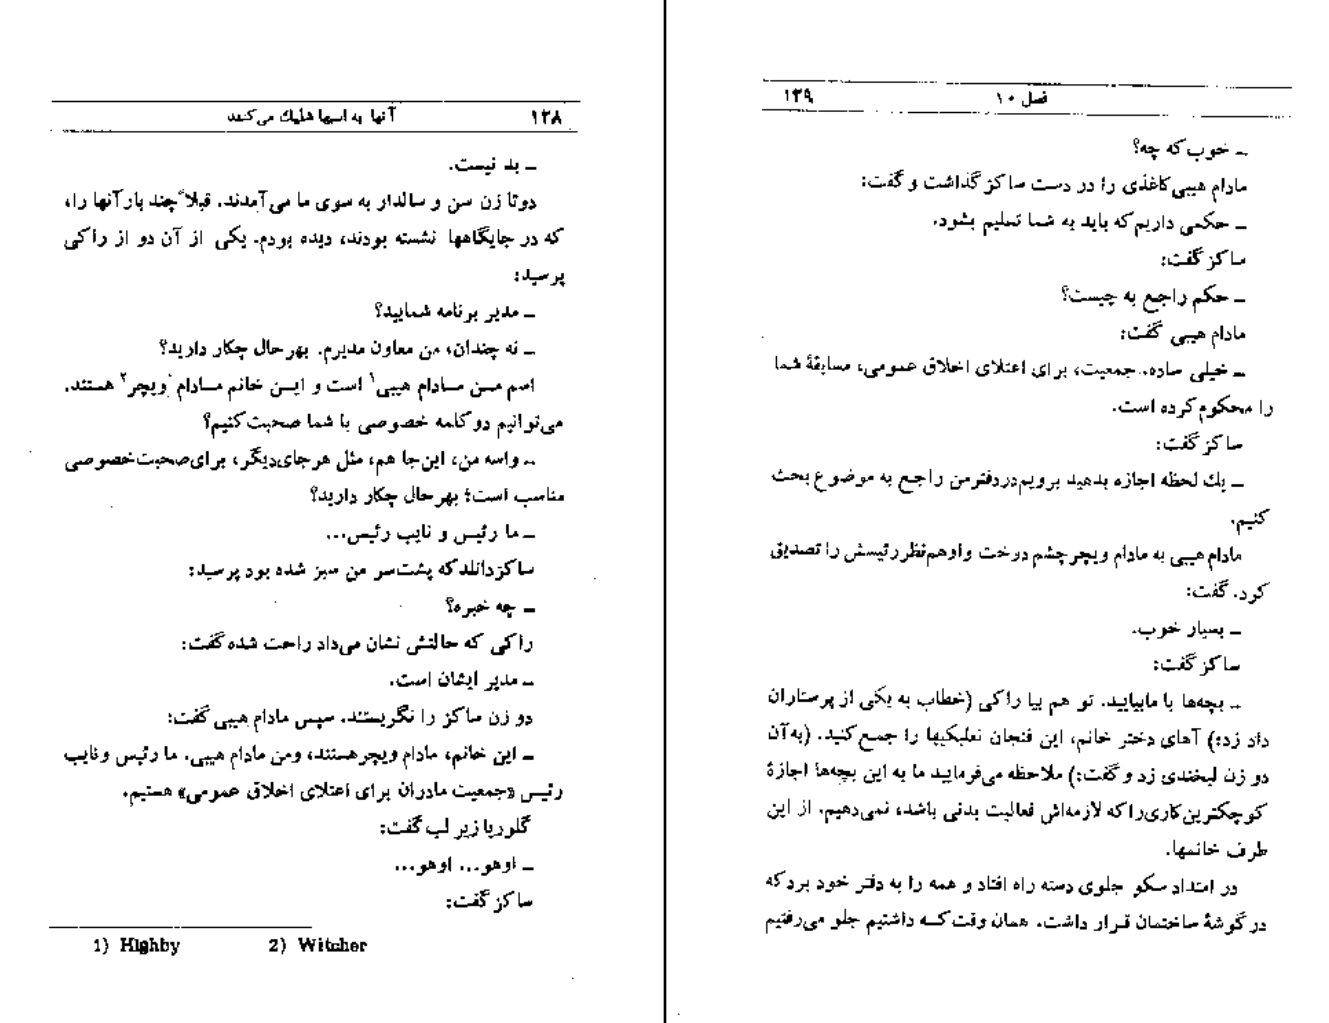 ۱۲۸
آنها به اسبها شلیك می‌کنند
ــ بد نیست.
دوتا زن سن و سالدار به سوی ما می‌آمدند. قبلاً چند بار آنها را،
که در جایگاهها نشسته بودند، دیده بودم. یکی از آن دو از راکی
پرسید:
ــ مدیر برنامه شمایید؟
ــ نه چندان، من معاون مدیرم. بهرحال چکار دارید؟
اسم مــن مــادام هیبی۱ است و ایــن خانم مــادام ویچر۲ هستند.
می‌توانیم دو کلمه خصوصی با شما صحبت کنیم؟
ــ واسه من، این‌جا هم، مثل هرجای‌دیگر، برای‌صحبت‌خصوصی
مناسب است؛ بهرحال چکار دارید؟
ــ ما رئیس و نایب رئیس...
ساکزدانلدکه پشت‌سر من سبز شده بود پرسید:
ــ چه خبره؟
راکی که حالتش نشان می‌داد راحت شده گفت:
ــ مدیر ایشان است.
دو زن ساکز را نگریستند. سپس مادام هیبی گفت:
ــ این خانم، مادام ویچرهستند، ومن مادام هیبی. ما رئیس ونایب
رئیس «جمعیت مادران برای اعتلای اخلاق عمومی» هستیم.
گلوریا زیر لب گفت:
ــ اوهو... اوهو...
ساکز گفت:
1) Highby 2) Witcher
فصل ۱۰
۱۲۹
ــ خوب که چه؟
مادام هیبی کاغذی را در دست ساکز گذاشت و گفت:
ــ حکمی داریم که باید به شما تسلیم بشود.
ساکز گفت:
ــ حکم راجع به چیست؟
مادام هیبی گفت:
ــ خیلی ساده. جمعیت، برای اعتلای اخلاق عمومی، مسابقهٔ شما
را محکوم کرده است.
ساکز گفت:
ــ یك لحظه اجازه بدهید برویم‌دردفترمن راجع به موضوع بحث
کنیم.
مادام هیبی به مادام ویچر چشم دوخت و اوهم‌نظررئیسش را تصدیق
کرد. گفت:
ــ بسیار خوب.
ساکز گفت:
ــ بچه‌ها با مابیایید. تو هم بیا راکی (خطاب به یکی از پرستاران
داد زد:) آهای دختر خانم، این فنجان نعلبکیها را جمع کنید. (به آن
دو زن لبخندی زد و گفت:) ملاحظه می‌فرمایید ما به این بچه‌ها اجازهٔ
کوچکترین‌کاری‌را که لازمه‌اش فعالیت بدنی باشد، نمی‌دهیم. از این
طرف خانمها.
در امتداد سکو جلوی دسته راه افتاد و همه را به دفتر خود برد که
در گوشهٔ ساختمان قــرار داشت. همان وقت کــه داشتیم جلو می‌رفتیم